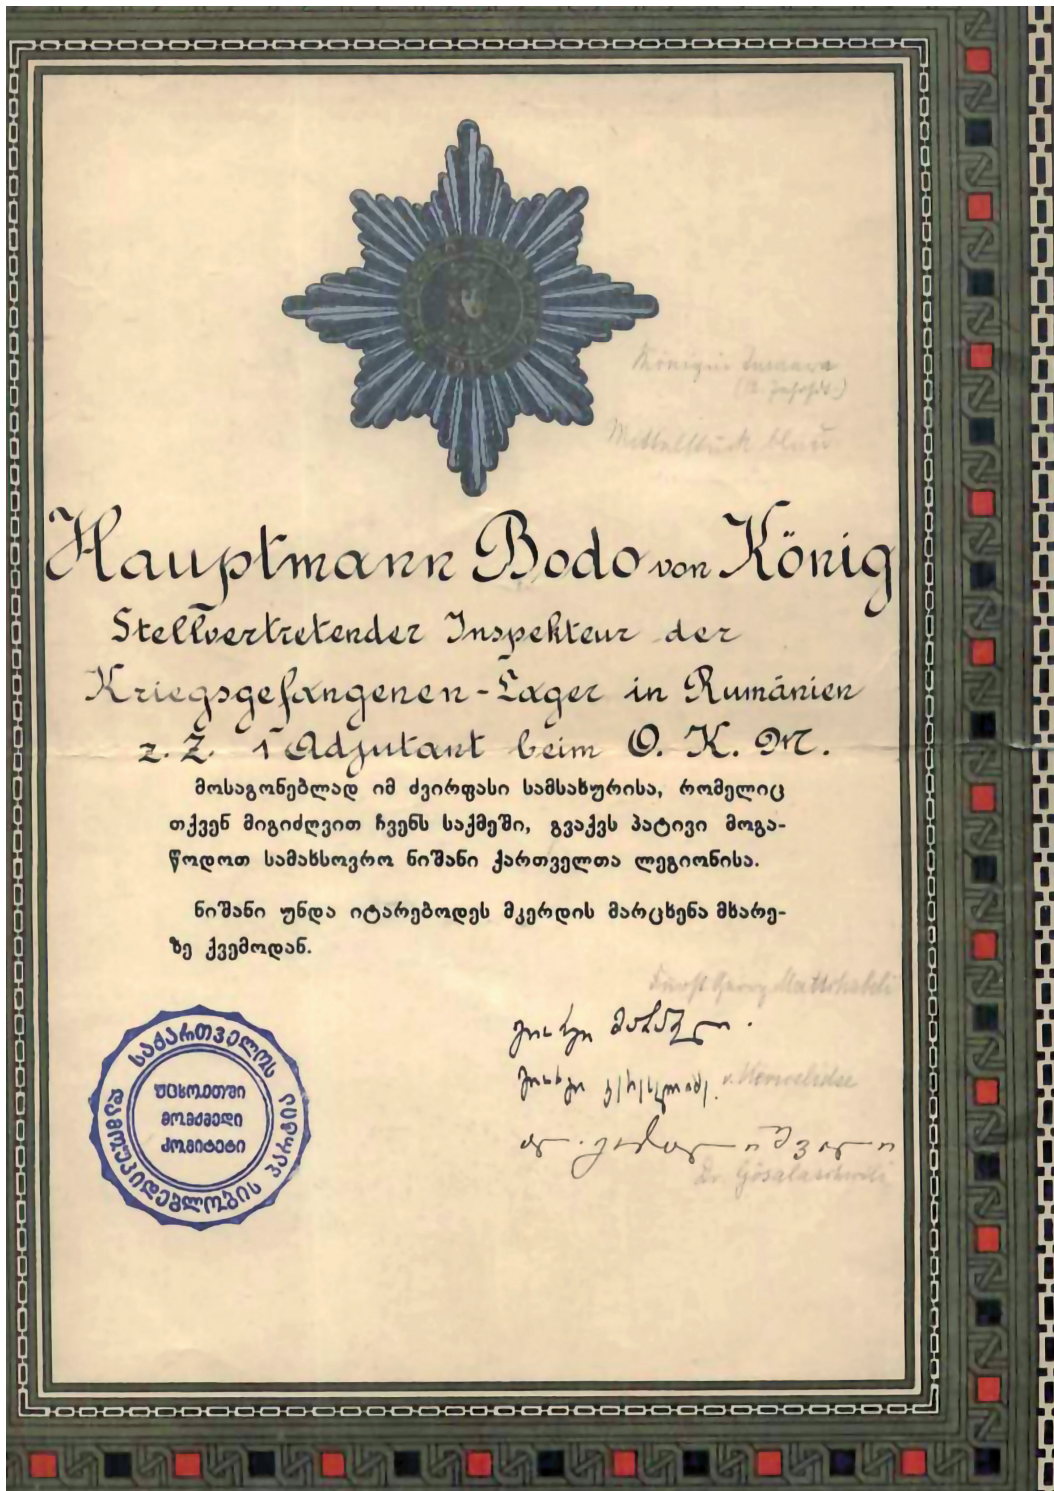 Königin Tamara
(12. Jahrhdt.)
Mittelstück blau
Hauptmann Bodo von König
Stellvertretender Inspekteur der
Kriegsgefangenen-Lager in Rumänien
z. Z. 1 Adjutant beim O. K. M.
მოსაგონებლად იმ ძვირფასი სამსახურისა, რომელიც
თქვენ მიგიძღვით ჩვენს საქმეში, გვაქვს პატივი მოგა-
წოდოთ სამახსოვრო ნიშანი ქართველთა ლეგიონისა.
ნიშანი უნდა იტარებოდეს მკერდის მარცხენა მხარე-
ზე ქვემოდან.
Fürst Georg Mattschabeli
საქართველოს
დამოუკიდებლობის პარტია
უცხოეთში
მომქმედი
კომიტეტი
Dr. Gösalaschwili